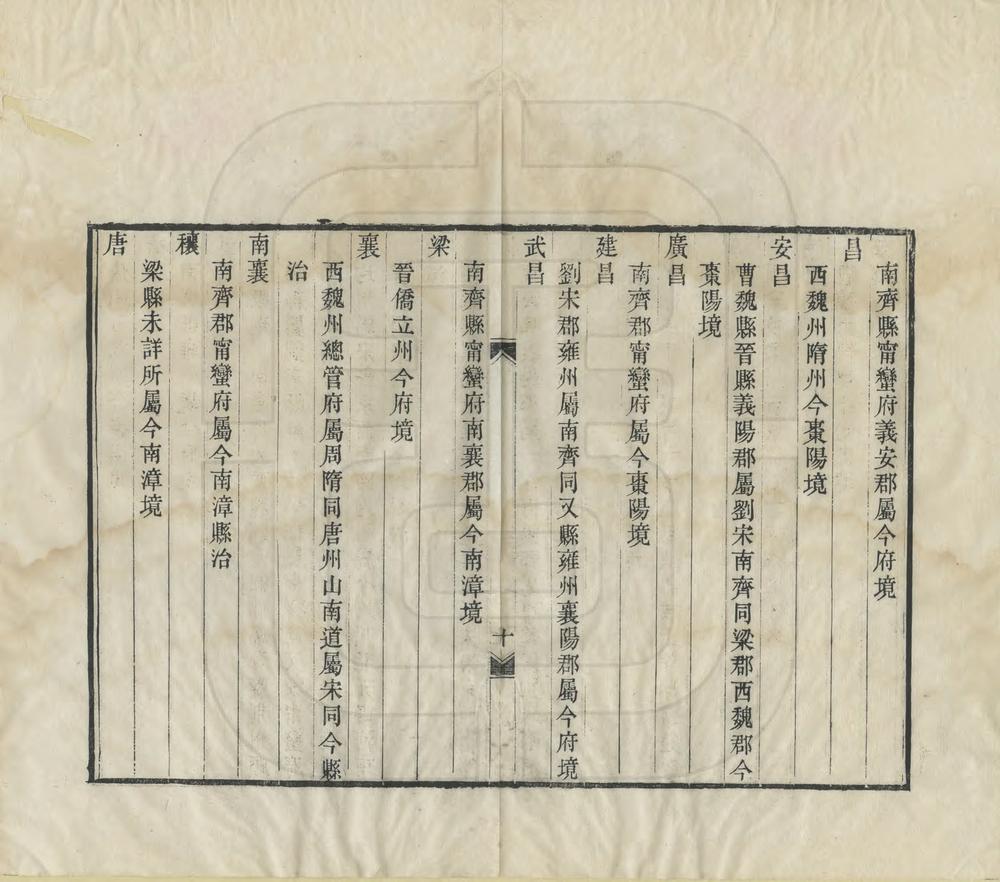 南齊縣甯蠻府義安郡屬今府境
昌
西魏州隋州今棗陽境
安昌
曹魏縣晉縣義陽郡屬劉宋南齊同梁郡西魏郡今
棗陽境
廣昌
南齊郡甯蠻府屬今棗陽境
建昌
劉宋郡雍州屬南齊同又縣雍州襄陽郡屬今府境
武昌
十
南齊縣甯蠻府南襄郡屬今南漳境
梁
晉僑立州今府境
襄
西魏州總管府屬周隋同唐州山南道屬宋同今縣
治
南襄
南齊郡甯蠻府屬今南漳縣治
穰
梁縣未詳所屬今南漳境
唐